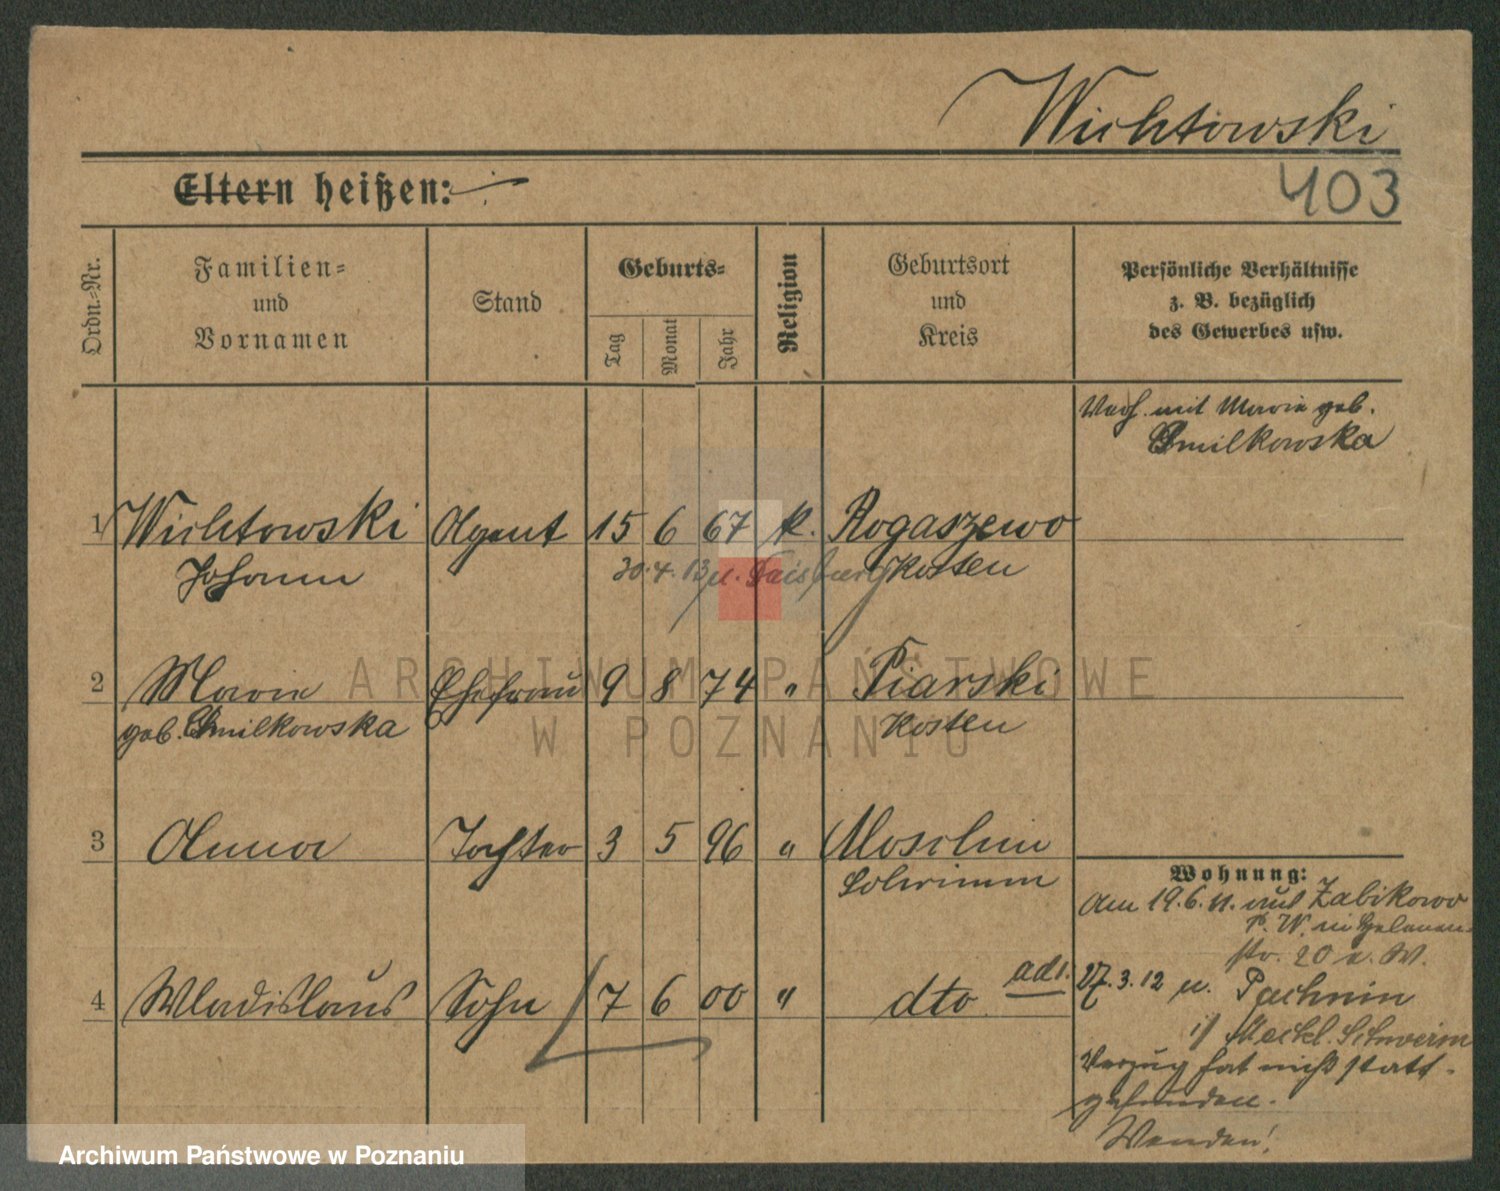 Wichtowski
Eltern heißen:
403
Ordn.=Nr.
Familien=
und
Vornamen
Stand
Geburts=
Tag
Monat
Jahr
Religion
Geburtsort
und
Kreis
Persönliche Verhältnisse
z. B. bezüglich
des Gewerbes usw.
Verh. mit Marie geb.
Smilkowska
1 Wichtowski Agent 15 6 67 k. Rogaszewo
Johann 30.4.13 n. Duisburg Kosten
2 Marie Ehefrau 9 8 74 " Piarski
geb. Smilkowska Kosten
3 Anna Tochter 3 5 96 " Moschin
Schrimm
4 Wladislaus Sohn 7 6 00 " dto
Wohnung:
Am 19.6.11. aus Zabikowo
P. W.
str. 20 b. W.
27.3.12 n. Pachnin
i/ Meckl. Schwerin
Verzug hat nicht statt-
gefunden.
Wenden!
ARCHIWUM PAŃSTWOWE
W POZNANIU
Archiwum Państwowe w Poznaniu